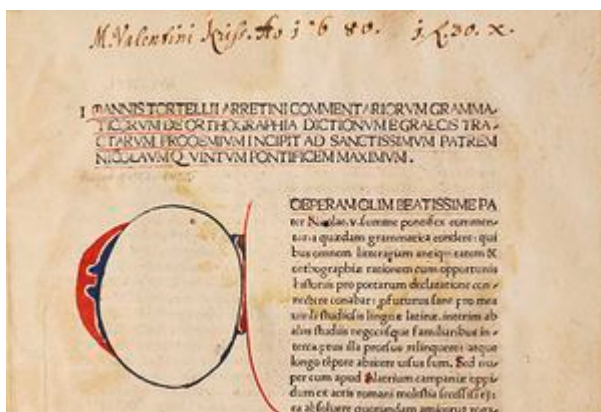 M. Valentini Ao 1680.
I OANNIS TORTELLII ARRETINI COMMENTARIORVM GRAMMA-
TICORVM DE ORTHOGRAPHIA DICTIONVM E GRAECIS TRA-
CTARVM PROOEMIVM INCIPIT AD SANCTISSIMVM PATREM
NICOLAVM QVINTVM PONTIFICEM MAXIMVM.
COEPERAM OLIM BEATISSIME PA
ter Nicolae .v. summe pontifex commen-
taria quædam grammatica condere: qui
bus omnem litterariam antiquitatem &
orthographiæ rationem cum opportunis
historiis pro poetarum declaratione con-
nectere conabar: profuturus sane pro mea
studiosis linguæ latinæ. interim ab
aliis studiis negociisque familiaribus in-
illa prorsus relinquere: atque
longo tempore abiicere visus sum. Sed nu-
per cum apud campaniæ oppi-
dum ex actis romani molestia
absoluere amicorum